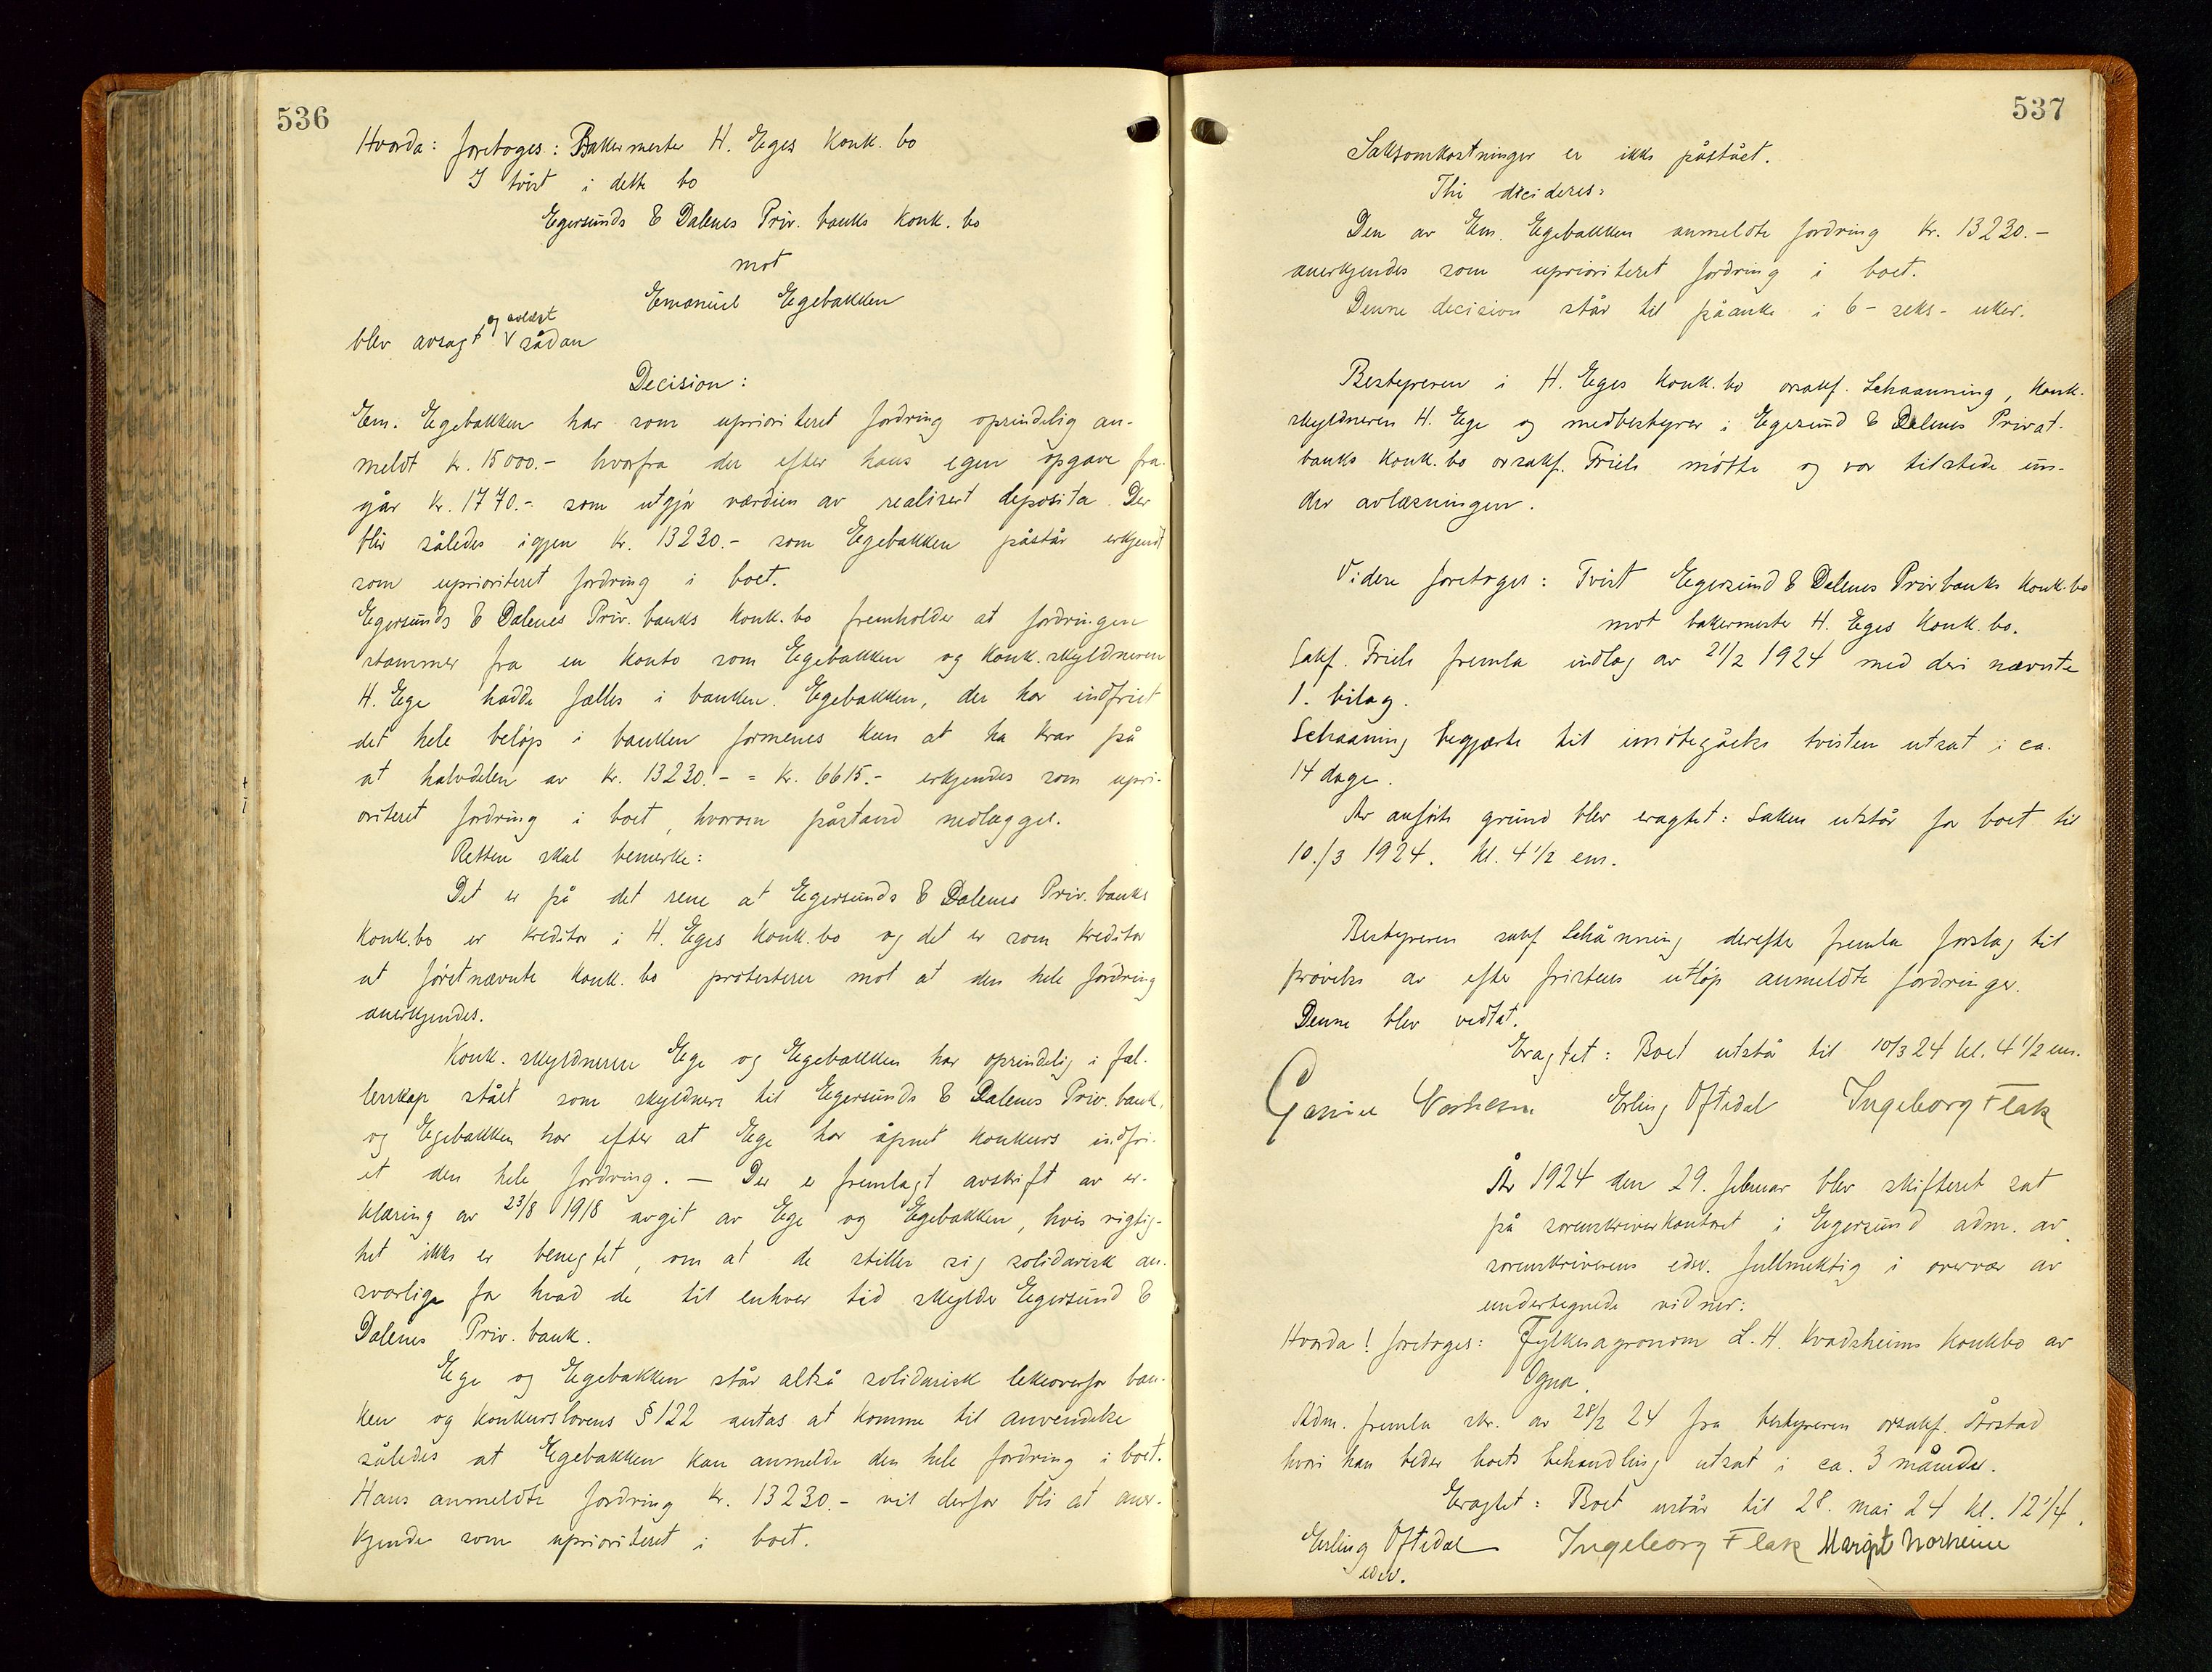 536
Hvorda: foretoges: Bakermester H. Eges Konk. bo
I tvist i dette bo
Egersunds & Dalenes Priv. banks Konk. bo
mot
Emanuel Egebakken
og avlæst
blev avsagt V sådan
Decision:
Em. Egebakken har som uprioritert fordring oprindelig an-
meldt kr. 15000.- hvorfra der efter hans egen opgave fra-
går kr. 1770.- som utgjør værdien av realisert deposita. Der
blir således igjen kr. 13230.- som Egebakken påstår erkjendt
som uprioriteret fordring i boet.
Egersunds & Dalenes Priv. banks Konk. bo fremholder at fordringen
stammer fra en konto som Egebakken og Konk. skyldneren
H. Ege hadde fælles i banken. Egebakken, der har indfriet
det hele beløp i banken formenes kun at ha krav på
at halvdelen av kr. 13230.- = kr. 6615.- erkjendes som upri-
oriteret fordring i boet, hvorom påstand nedlægges.
Retten skal bemerke:
Det er på det rene at Egersunds & Dalenes Priv. banks
Konk.bo er kreditor i H. Eges Konk.bo og det er som kreditor
at førstnævnte Konk. bo protesterer mot at den hele fordring
anerkjendes.
Konk. skyldneren Ege og Egebakken har oprindelig i fæl-
lesskap stått som skyldnere til Egersunds & Dalenes Priv. bank,
og Egebakken har efter at Ege har åpnet konkurs indfri-
et den hele fordring. — Der er fremlagt avskrift av er-
klæring av 23/8 1918 avgit av Ege og Egebakken, hvis rigtig-
het ikke er benegtet, om at de stiller sig solidarisk an-
svarlige for hvad de til enhver tid skylder Egersund &
Dalenes Priv. bank.
Ege og Egebakken står altså solidarisk likeoverfor ban-
ken og Konkurslovens § 122 antas at komme til anvendelse
således at Egebakken kan anmelde den hele fordring i boet.
Hans anmeldte fordring kr. 13230.- vil derfor bli at aner-
kjende som uprioriteret i boet.
537
Saksomkostninger er ikke påstået.
Thi decideres:
Den av Em. Egebakken anmeldte fordring kr. 13230.-
anerkjendes som uprioriteret fordring i boet.
Denne decision står til påanke i 6 - seks - uker.
Bestyreren i H. Eges Konk. bo orsakf. Schaanning, Konk.
skyldneren H. Ege og medbestyrer i Egersund & Dalenes Privat-
banks Konk. bo orsakf. Friels møtte og var tilstede un-
der avlæsningen.
Videre foretoges: Tvist Egersund & Dalenes Privbanks Konk.bo
mot bakermester H. Eges Konk. bo.
Sakf. Friels fremla indlæg av 21/2 1924 med deri nævnte
1. bilag.
Schaaning begjærte til imøtegåelse tvisten utsat i ca.
14 dage.
Av anførte grund blev eragtet: Saken utstår for boet til
10./3 1924. kl. 4 1/2 em.
Bestyreren sakf. Schånning derefter fremla forslag til
prøvelse av efter fristens utløp anmeldte fordringer.
Denne blev vedtat.
Eragtet: Boet utstår til 10/3 24 kl. 4 1/2 em.
Erling Oftedal Ingeborg Flak
År 1924 den 29. februar blev skifteret sat
på sorenskriverkontoret i Egersund adm. av
sorenskriverens edsv. fullmektig i overvær av
undertegnede vidner:
Hvorda! foretoges: Fylkesagronom L. H. Kvadsheims Konkbo av
Ogna.
Adm. fremla skr. av 28/2 24 fra bestyreren orsakf. Årstad
hvori han beder boets behandling utsat i ca. 3 måneder.
Eragtet: Boet utstår til 28. mai 24 kl. 12 1/4.
Erling Oftedal Ingeborg Flak Margit Norheim
edsv.